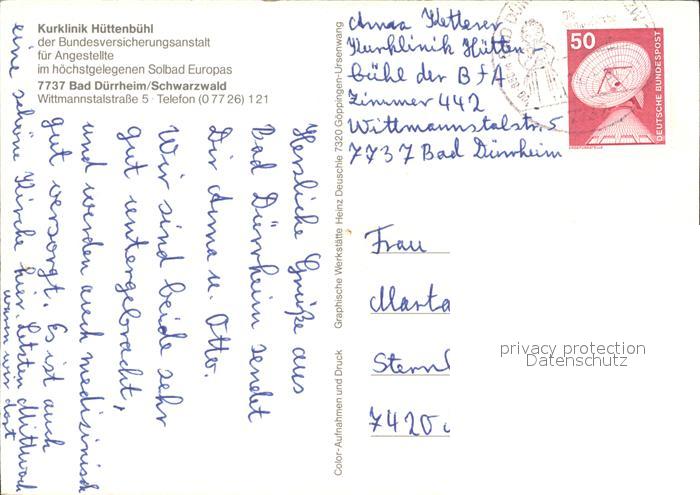 Kurklinik Hüttenbühl
der Bundesversicherungsanstalt
für Angestellte
im höchstgelegenen Solbad Europas
7737 Bad Dürrheim/Schwarzwald
Wittmannstalstraße 5 · Telefon (0 77 26) 121
Herzliche Grüße aus
Bad Dürrheim sendet
Dir Anna u. Otto.
Wir sind beide sehr
gut untergebracht,
und werden auch medizinisch
gut versorgt. Es ist auch
eine schöne Kirche hier. Letzten Mittwoch
waren wir dort
Color-Aufnahmen und Druck Graphische Werkstätte Heinz Deuschle 7320 Göppingen-Ursenwang
Anna Ketterer
Kurklinik Hütten-
bühl der BfA
Zimmer 442
Wittmannstalstr. 5
7737 Bad Dürrheim
50
DEUTSCHE BUNDESPOST
Frau
Marta
Stern
7420
privacy protection
Datenschutz